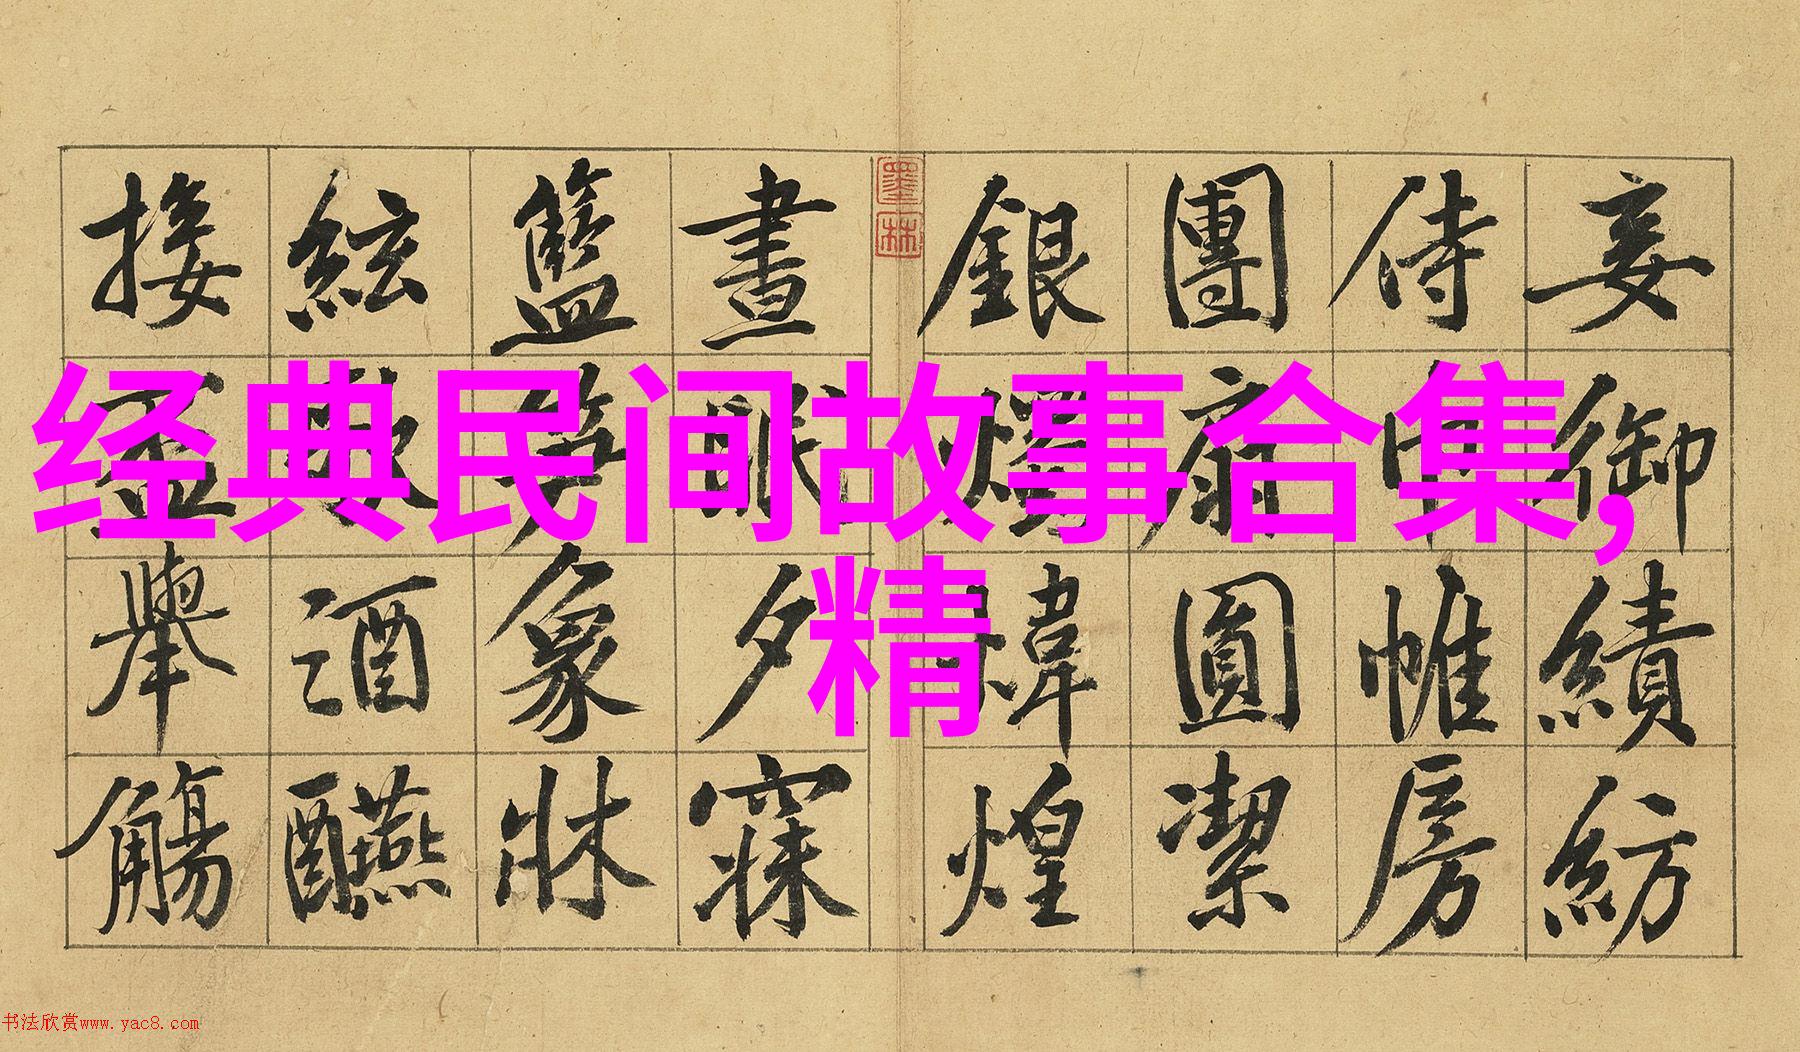 妾御績紡
侍巾帷房
團扇圓潔
銀燭煒煌
墨林
晝眠夕寐
籃笋象牀
絃歌酒醼
接盃舉觴
经典民间故事合集,
精
书法欣赏www.yac8.com